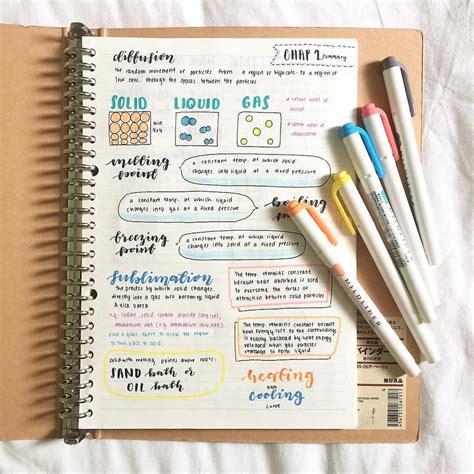 diffusion
CHAP 1 summary
the random movement of particles from a region of high conc. to a region of
low conc. through the spaces between the particles
SOLID LIQUID GAS
melting
point
a constant temp. at which solid
changes into liquid at a fixed pressure
a constant temp. at which liquid
changes into gas at a fixed pressure
boiling
point
freezing
point
a constant temp. at which liquid
changes into solid at a fixed pressure
Sublimation
the process by which solid changes
directly into a gas w/o becoming liquid
& vice versa
e.g. iodine, solid carbon dioxide (dry ice),
ammonium salt (e.g. ammonium chloride)
The temp. remains constant
because heat absorbed is used
to overcome the forces of
attraction between solid particles
The temp. remains constant because
heat energy loss to the surroundings
is balanced by heat energy
released when particles
to form liquid
solid with melting points above 100°C:
SAND bath or
OIL bath
heating
and
cooling
curve
MILDLINER
バインダー
BINDER
無印良品